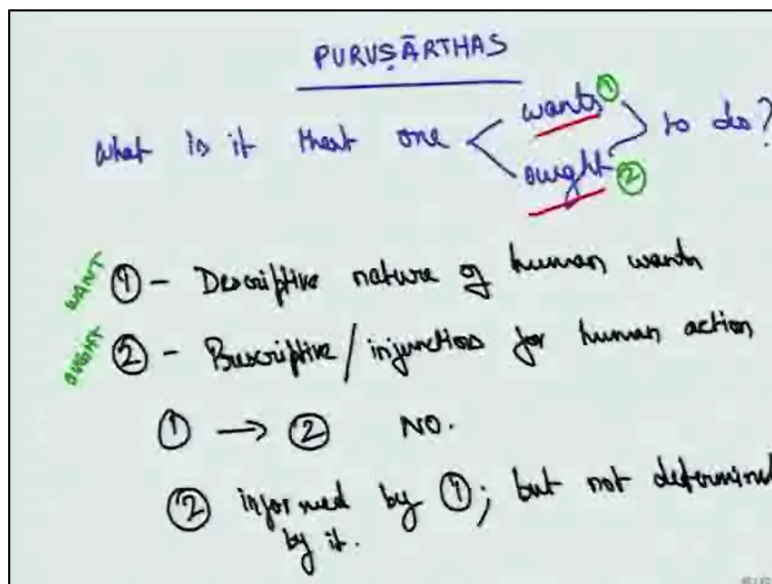 PURUṢĀRTHAS
What is it that one < wants ① ought ② > to do?
WANT ① - Descriptive nature of human wants
OUGHT ② - Prescriptive/injunctions for human action
① → ② NO.
② informed by ①; but not determined
by it.